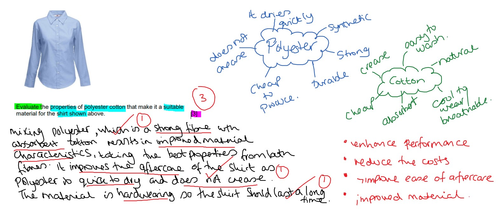 Evaluate the properties of polyester cotton that make it a suitable
material for the shirt shown above.
[3]
3
mixing polyester which is a strong fibre with
absorbent cotton results in improved material
characteristics, taking the best properties from both
fibres. It improves the aftercare of the shirt as
polyester is quick to dry and does not crease.
The material is hardwearing so the shirt should last a long
time.
1
1
1
Polyester
it dries
quickly
synthetic
Strong
Durable
cheap
to
produce.
does not
crease
Cotton
easy to
wash.
natural
cool to
wear
breathable.
absorbent
cheap
crease
• enhance performance
• reduce the costs
• improve ease of aftercare
• improved material.